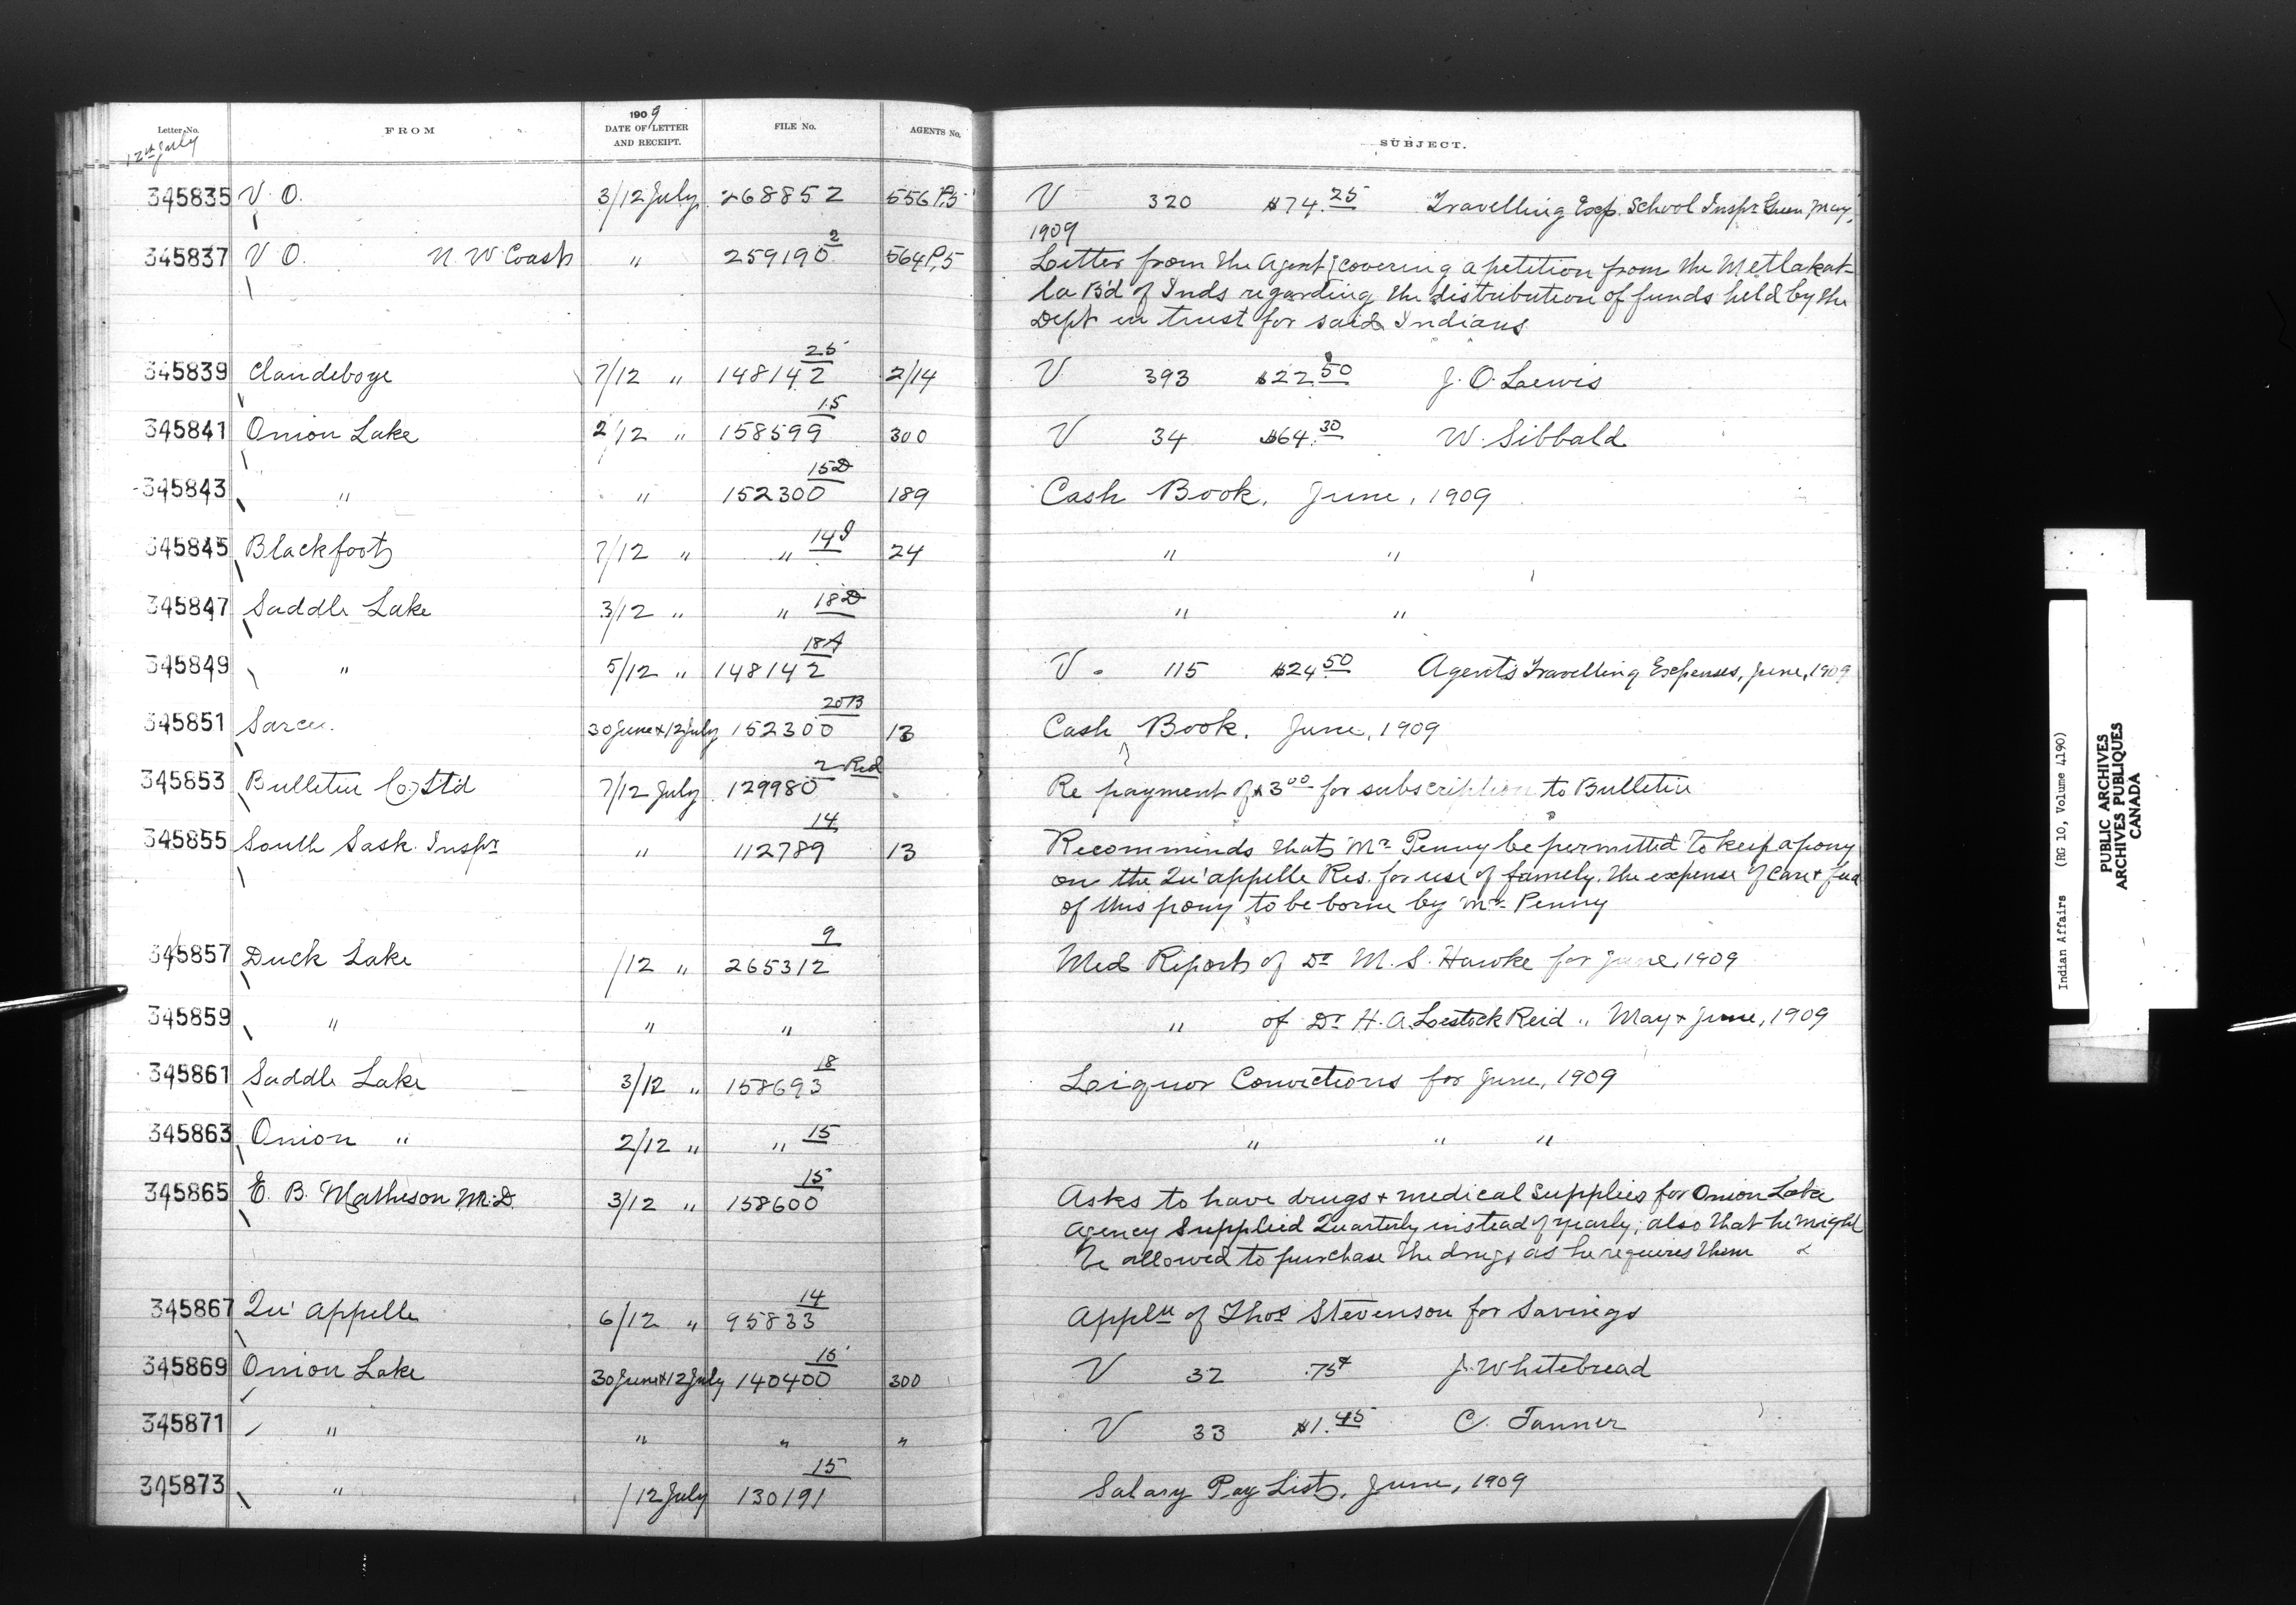 Letter No. FROM 1909 DATE OF LETTER AND RECEIPT. FILE No. AGENTS No. SUBJECT.
12th July
345835 V. O. 3/12 July 268852 556 P.5 V 320 $74.25 Travelling Exp. School Inspr Green May,
1909
345837 V. O. N. W. Coast " 259190 2 564 P.5 Letter from the Agent covering a petition from the Metlakat-
la Bd of Inds regarding the distribution of funds held by the
Dept in trust for said Indians
345839 Clandeboye 7/12 " 148142 25 2/14 V 393 $22.50 J. O. Lewis
345841 Onion Lake 2/12 " 158599 15 300 V 34 $64.30 W. Sibbald
345843 " " 152300 15D 189 Cash Book, June, 1909
345845 Blackfoot 7/12 " " 14J 24 " "
345847 Saddle Lake 3/12 " " 18D " "
345849 " 5/12 " 148142 18A V 115 $24.50 Agent's Travelling Expenses, June, 1909
345851 Sarcee. 30 June & 12 July 152300 20B 13 Cash Book, June, 1909
345853 Bulletin Co Ltd 7/12 July 129980 2 Red Re payment of $3.00 for subscription to Bulletin
345855 South Sask. Inspr " 112789 14 13 Recommends that Mr Penny be permitted to keep a pony
on the Qu'appelle Res. for use of family. The expense of care & feed
of this pony to be borne by Mr Penny
345857 Duck Lake /12 " 265312 9 Med Report of Dr M. S. Hawke for June, 1909
345859 " " " " of Dr H. A. Lestock Reid " May & June, 1909
345861 Saddle Lake 3/12 " 158693 18 Liquor Convictions for June, 1909
345863 Onion " 2/12 " " 15 " " "
345865 E. B. Matheson M.D. 3/12 " 158600 15 Asks to have drugs & medical supplies for Onion Lake
Agency supplied Quarterly instead of yearly; also that he might
be allowed to purchase the drugs as he requires them
345867 Qu'appelle 6/12 " 95833 14 Appln of Thos Stevenson for Savings
345869 Onion Lake 30 June & 12 July 140400 15 300 V 32 .75¢ J. Whitebread
345871 " " " " V 33 $1.45 C. Tanner
345873 " /12 July 130191 15 Salary Pay List, June, 1909
Indian Affairs (RG 10, Volume 4190)
PUBLIC ARCHIVES
ARCHIVES PUBLIQUES
CANADA